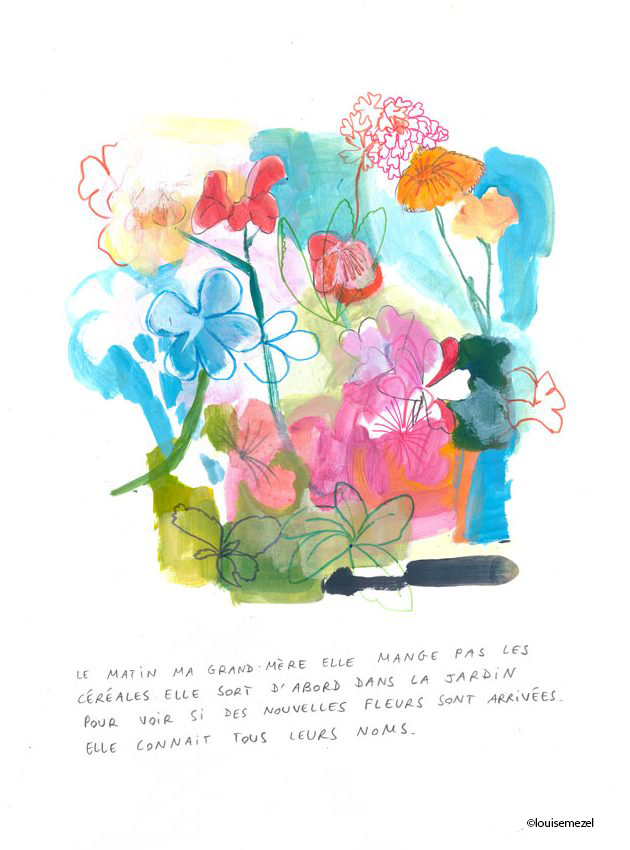 LE MATIN MA GRAND-MÈRE ELLE MANGE PAS LES
CÉRÉALES ELLE SORT D'ABORD DANS LA JARDIN
POUR VOIR SI DES NOUVELLES FLEURS SONT ARRIVÉES.
ELLE CONNAIT TOUS LEURS NOMS.
©louisemezel